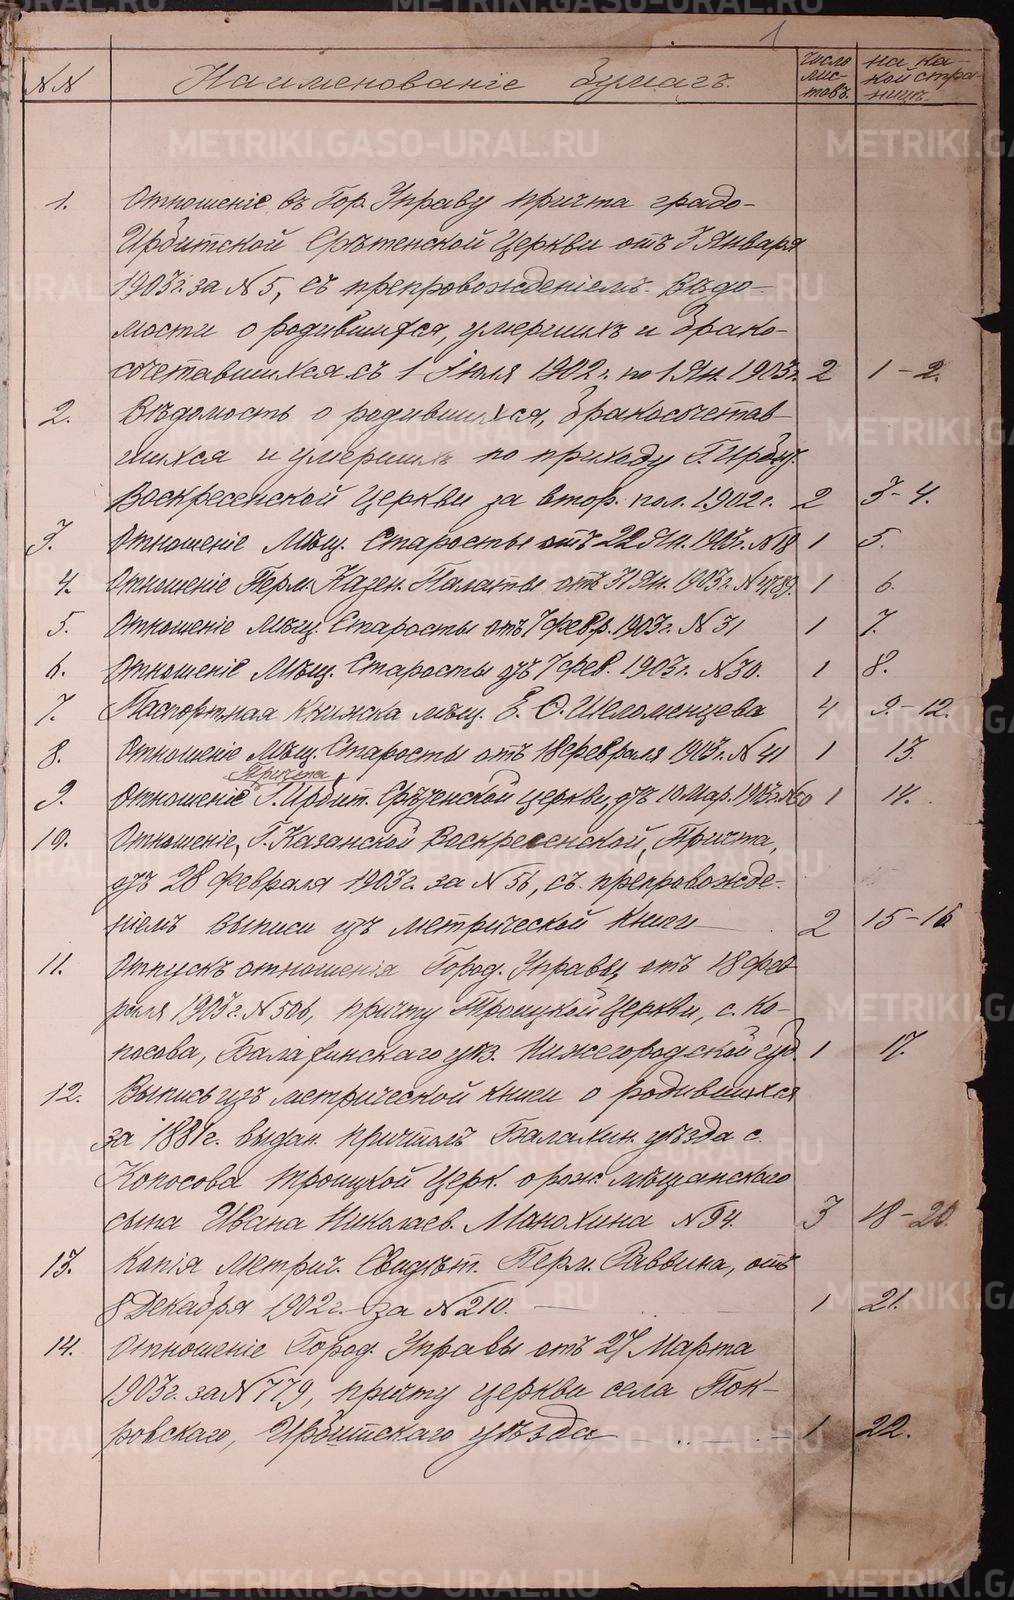 1
NN Наименованіе бумагъ. Число листовъ. на какой страницѣ.
1. Отношеніе въ Гор. Управу причта градо-
Ирбитской Срѣтенской Церкви отъ 3 Января
1903 г. за № 5, съ препровожденіемъ вѣдо-
мости о родившихся, умершихъ и брако-
сочетавшихся съ 1 Іюля 1902 г. по 1 Ян. 1903 г. 2 1-2.
2. Вѣдомость о родившихся, бракосочетав-
шихся и умершихъ по приходу Г. Ирбит.
Воскресенской Церкви за втор. пол. 1902 г. 2 3-4.
3. Отношеніе Мѣщ. Старосты отъ 22 Ян. 1903 г. № 18 1 5.
4. Отношеніе Перм. Казен. Палаты отъ 31 Ян. 1903 г. № 4789. 1 6.
5. Отношеніе Мѣщ. Старосты отъ 7 февр. 1903 г. № 31 1 7.
6. Отношеніе Мѣщ. Старосты отъ 7 фев. 1903 г. № 30. 1 8.
7. Паспортная Книжка мѣщ. Е. С. Шеломенцева 4 9.-12.
8. Отношеніе Мѣщ. Старосты отъ 18 февраля 1903 г. № 41 1 13.
Причта
9. Отношеніе Г. Ирбит. Срѣтенской церкви, отъ 10 Мар. 1903 г. № 60 1 14.
10. Отношеніе, Г. Казанской Воскресенской, Причта,
отъ 28 Февраля 1903 г. за № 56, съ препровожде-
ніемъ выписи изъ метрической книги 2 15-16
11. Отпускъ отношенія Город. Управы, отъ 18 фев-
раля 1903 г. № 506, причту Троицкой Церкви, с. Ко-
посова, Балахнинскаго уѣз. Нижегородской губ. 1 17.
12. Выпись изъ метрической книги о родившихся
за 1881 г. выдан. причтомъ Балахн. уѣзда с.
Копосова Троицкой Церк. о рож. мѣщанского
сына Ивана Николаев. Манохина № 94. 3 18-20.
13. Копія Метрич. Свидѣт. Перм. Раввина, отъ
8 Декабря 1902 г. за № 210. 1 21.
14. Отношеніе Город. Управы отъ 27 Марта
1903 г. за № 779, причту церкви села Пок-
ровскаго, Ирбитскаго уѣзда 1 22.
METRIKI.GASO-URAL.RU